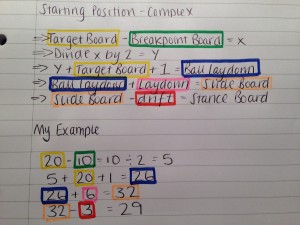 Starting Position - Complex
⇒ Target Board - Breakpoint Board = x
⇒ Divide x by 2 = Y
⇒ Y + Target Board + 1 = Ball Laydown
⇒ Ball Laydown + Laydown = Slide Board
⇒ Slide Board - drift = Stance Board
My Example
20 - 10 = 10 ÷ 2 = 5
5 + 20 + 1 = 26
26 + 6 = 32
32 - 3 = 29